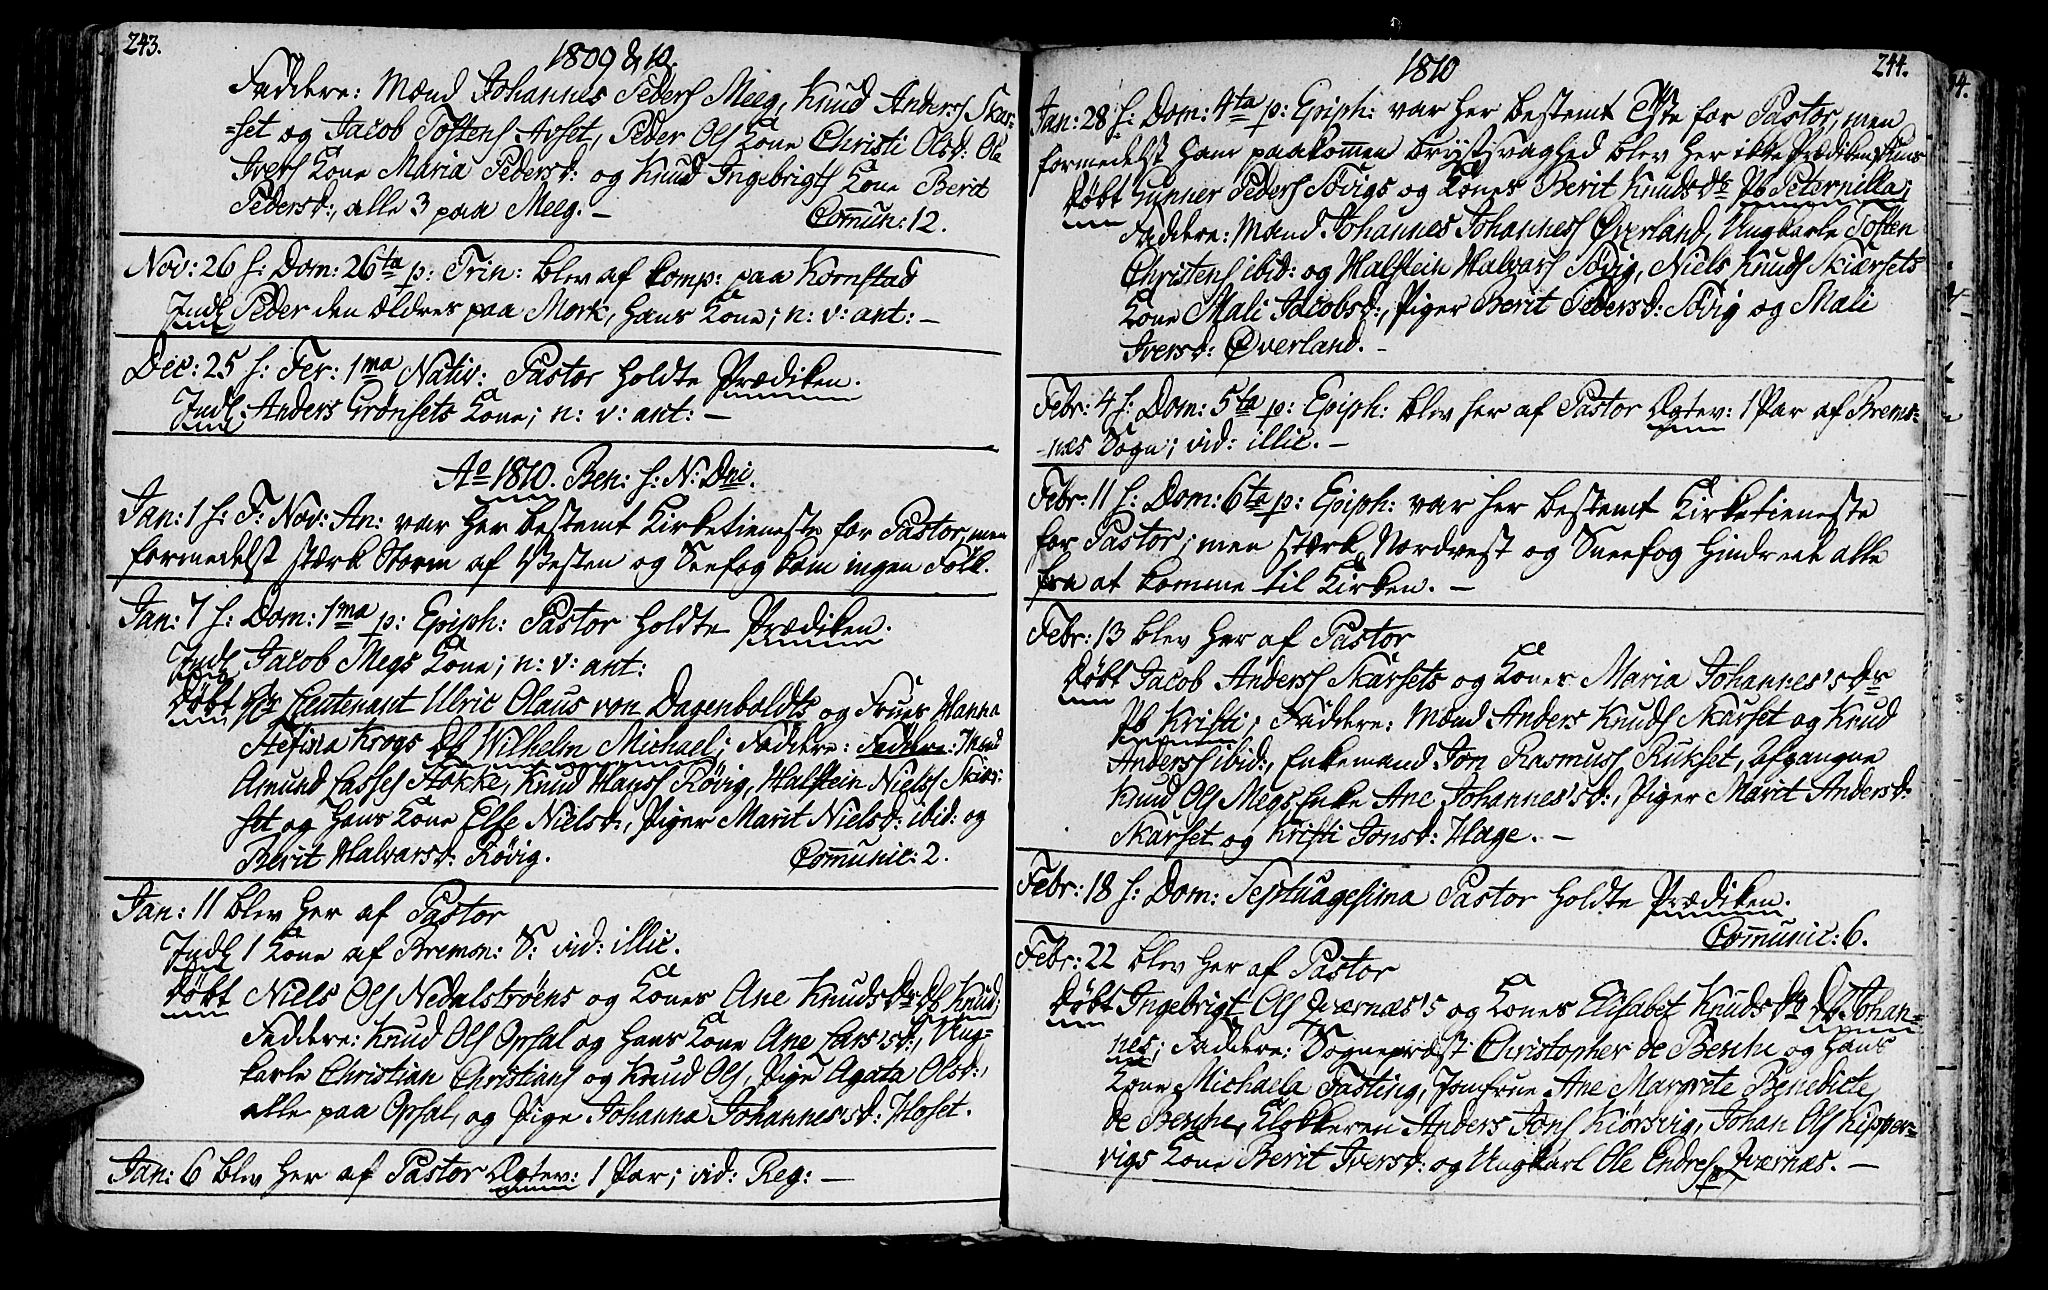 243.
1809 & 10.
Faddere: Mænd Johannes Peders Meeg, Knud Anders Skar-
set og Jacob Tostens Avset, Peder Ols Kone Christi Olsd: Ole
Ivers Kone Maria Pedersd: og Knud Ingebrigts Kone Berit
Pedersd:, alle 3 paa Meeg. – Com̄un: 12.
Nov: 26 s: Dom: 26ta p: Trin: blev af Komp: paa Kornstad
Indl Peder den Ældres paa Mork, hans Kone; n: v: ant: –
Dec: 25 s: Fer: 1ma Nativ: Pastor holdte Prædiken.
Indl: Anders Grønsets Kone; n: v: ant: –
Ao 1810. Ben: s: N: Dni.
Jan: 1 s: F: Nov: An: var her bestemt Kirketieneste for Pastor, men
formedelst stærk Storm af Vesten og Sneefog kom ingen Folk.
Jan: 7 s: Dom: 1ma p: Epiph: Pastor holdte Prædiken.
Indl Jacob Megs Kone; n: v: ant:
Døbt Hr Lieutenant Ulric Olaus von Dagenboldts og Frues Hanna
Stesina Krogs Db Wilhelm Michael; Faddere: Faddere: Mænd
Amund Lasses Stokke, Knud Hans Røvig, Halstein Niels Skiær-
set og hans Kone Else Nielsd:, Piger Marit Nielsd: ibid: og
Berit Halvarsd: Røvig. Com̄unic: 2.
Jan: 11 blev her af Pastor
Indl 1 Kone af Bremsn: S: vid: illic.
Døbt Niels Ols Nedalstrøens og Kones Ane Knudsdr Db Knud;
Faddere: Knud Ols Opsal og hans Kone Ane Lars'sd:, Ung-
karle Christian Christians og Knud Ols, Pige Agata Olsd:,
alle paa Opsal, og Pige Johanna Johannes'sd: Hoset.
Jan: 6 blev her af Pastor Ægtev: 1 Par; vid: Reg: –
1810
244.
Jan: 28 s: Dom: 4ta p: Epiph: var her bestemt Tste for Pastor, men
formedelst ham paakom̄en Brystsvaghed blev her ikke Prædiken, kuns
Døbt Gunner Peders Sødvigs og Kones Berit Knudsdr Pb Peternilla;
Faddere: Mænd Johannes Johannes Øverland, Ungkarle Tosten
Christens ibid: og Halstein Halvars Sødvig, Niels Knuds Skiærsets
Kone Mali Jacobsd:, Piger Berit Pedersd: Sødvig og Mali
Iversd: Øverland. –
Febr: 4 s: Dom: 5ta p: Epiph: blev her af Pastor Ægtev: 1 Par af Brems-
næs Sogn; vid: illic. –
Febr: 11 s: Dom: 6ta p: Epiph: var her bestemt Kirketieneste
for Pastor; men stærk Nordvest og Sneefog hindrede alle
fra at komme til Kirken. –
Febr: 13 blev her af Pastor
Døbt Jacob Anders Skarsets og Kones Maria Johannes's Dr
Pb Kristi; Faddere: Mænd Anders Knuds Skarset og Knud
Anders ibid:, Enkemand Jon Rasmuss Rukset, afgangne
Knud Ols Megs Enke Ane Johannes'sd:, Piger Marit Andersd:
Skarset og Kristi Jonsd: Hage. –
Febr: 18 s: Dom: Septuagesima Pastor holdte Prædiken.
Com̄unic: 6.
Febr: 22 blev her af Pastor
Døbt Ingebrigt Ols Sværnæs's og Kones Elisabet Knudsdr Db Johan-
nes; Faddere: Sognepræst Christopher de Besche og hans
Kone Michaela Fasting, Jomfrue Ane Margrete Benedicte
de Besche, Klokkeren Anders Jons Kiørsvig, Johan Ols Kipper-
vigs Kone Berit Iversd: og Ungkarl Ole Endres Sværnæs. –